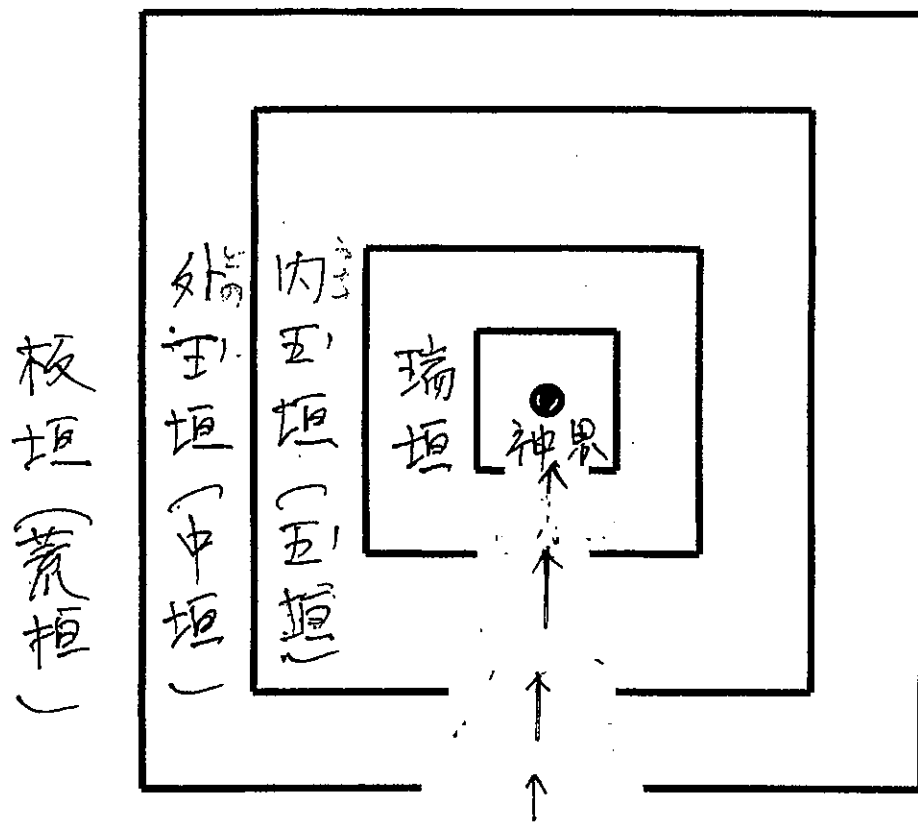 板垣(荒垣)
外玉垣(中垣)
内玉垣(玉垣)
瑞垣
神界